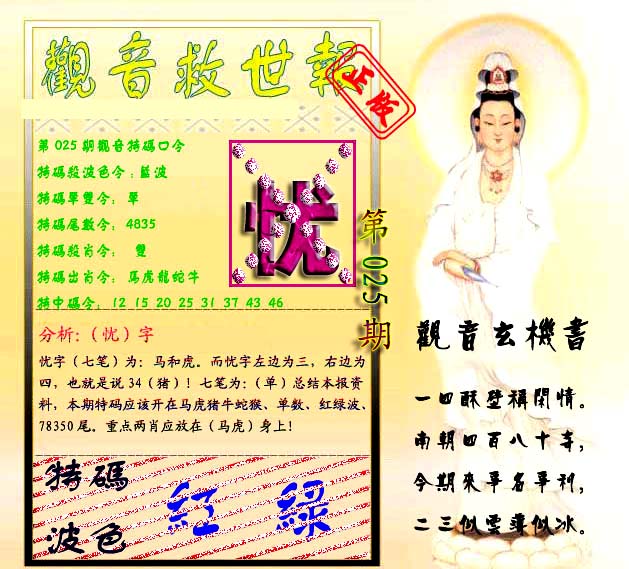 觀音救世報
正版
第025期觀音特碼口令
特碼殺波色令:藍波
特碼單雙令: 單
特碼尾數令: 4835
特碼殺肖令: 雙
特碼出肖令: 馬虎龍蛇牛
特中碼令: 12 15 20 25 31 37 43 46
忧
第025期
分析:(忧)字
忧字(七笔)为: 马和虎。而忧字左边为三, 右边为
四, 也就是说 34 (猪)! 七笔为: (单) 总结本报资
料, 本期特码应该开在马虎猪牛蛇猴、单数、红绿波、
78350 尾。重点两肖应放在 (马虎) 身上!
特碼
波色
紅 綠
觀音玄機書
一四酥壁稱閑情。
南朝四百八十寺,
今期來爭名爭利,
二三似雲尊似冰。